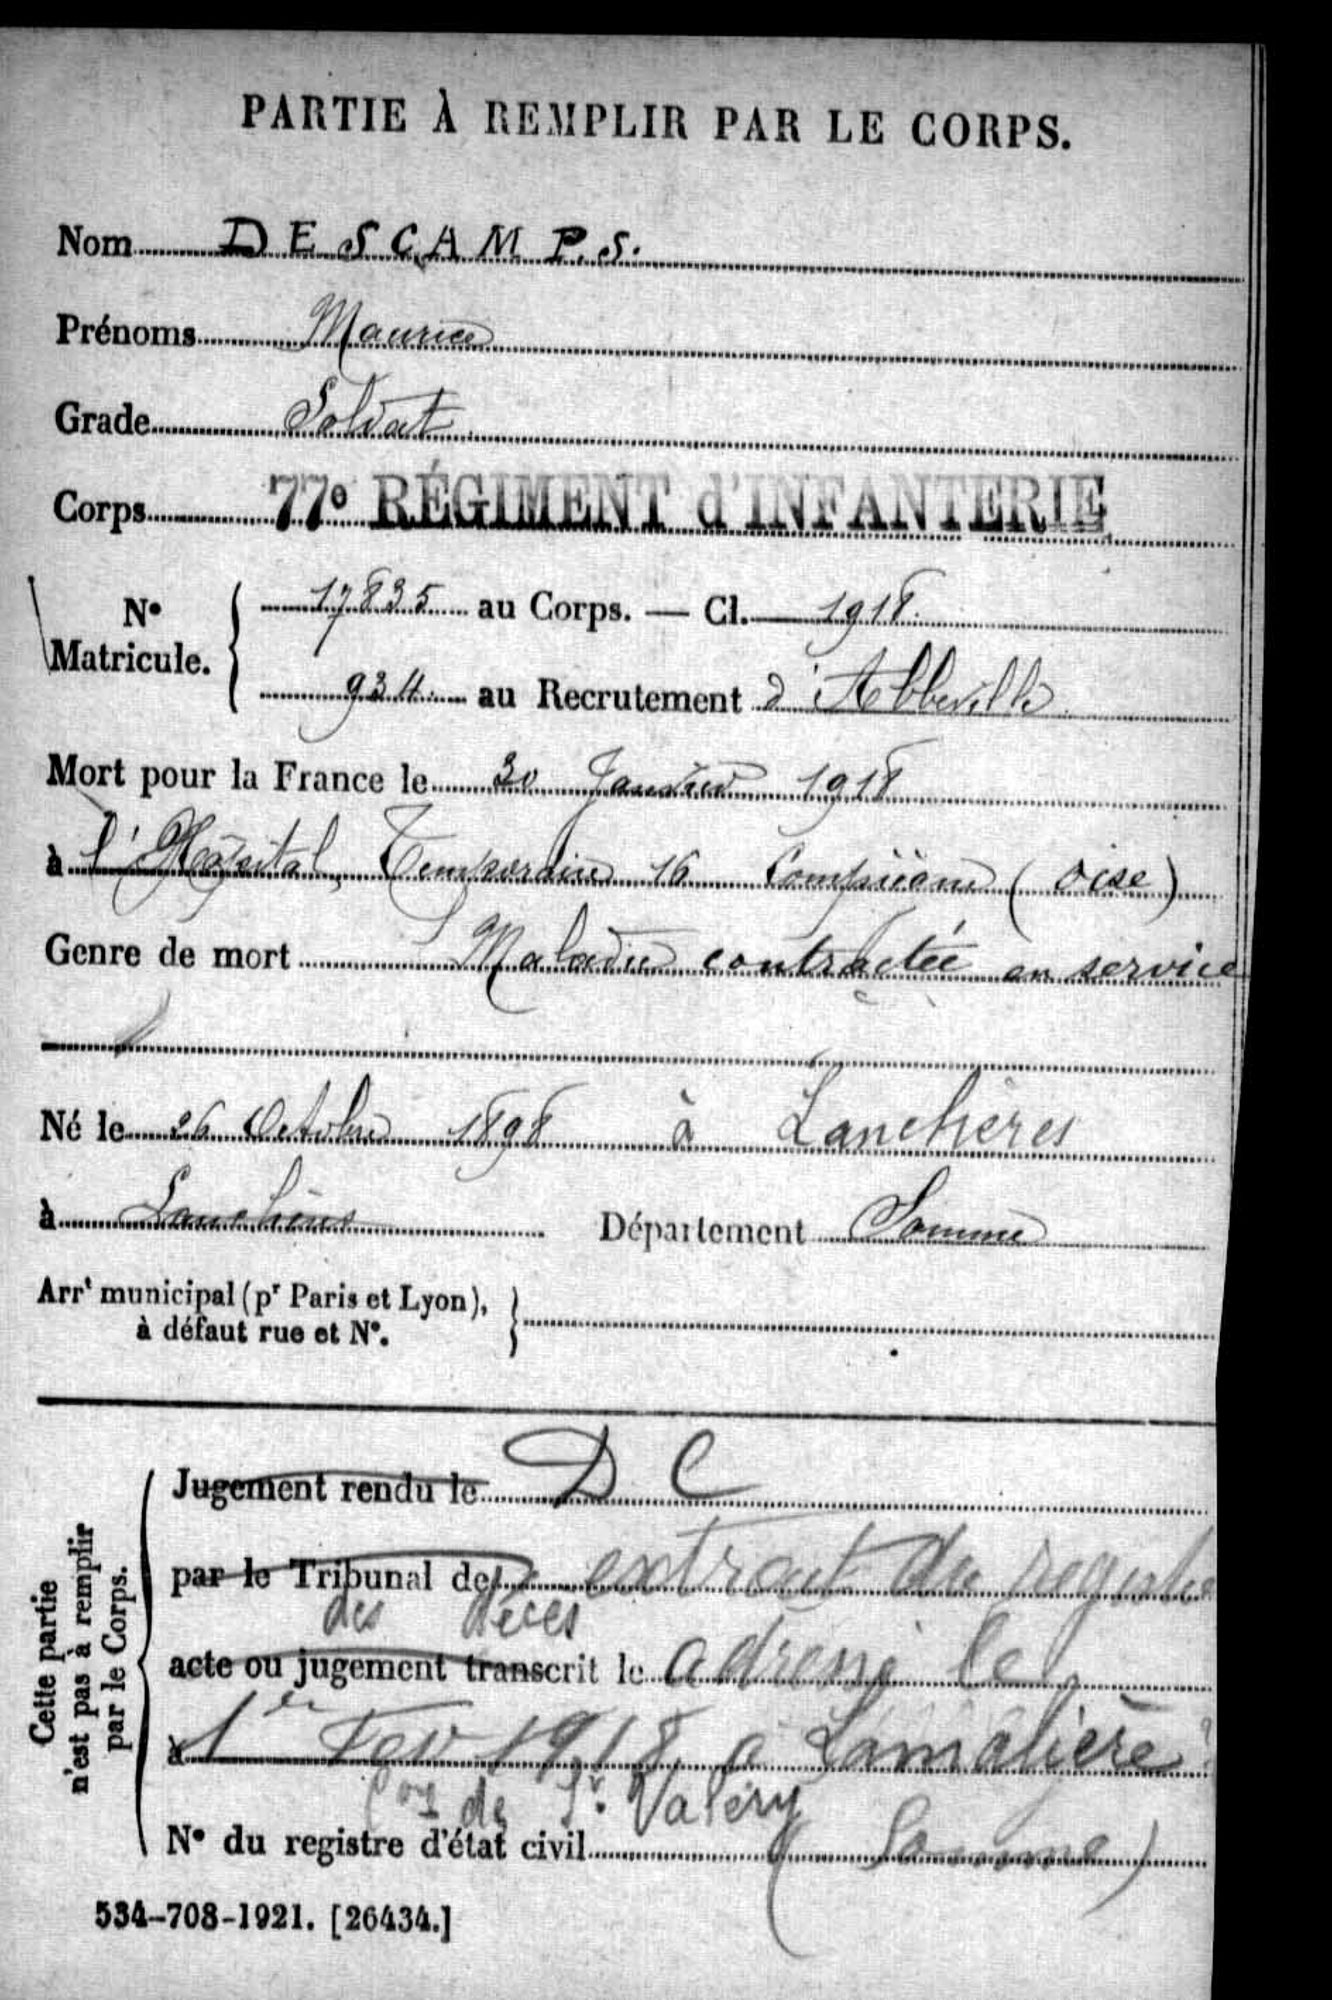 PARTIE À REMPLIR PAR LE CORPS.
Nom DESCAMPS.
Prénoms Maurice
Grade Soldat
Corps 77e RÉGIMENT d'INFANTERIE
No Matricule. { 17835 au Corps. — Cl. 1918
934 au Recrutement d'Abbeville
Mort pour la France le 30 Janvier 1918
à l'Hôpital Temporaire 16 Compiègne (Oise)
Genre de mort Maladie contractée en service
Né le 26 Octobre 1898 à Lanchères
à Lanchères Département Somme
Arrt municipal (pr Paris et Lyon), à défaut rue et No. }
Cette partie n'est pas à remplir par le Corps.
Jugement rendu le D C
par le Tribunal de extrait du registre
des décès
acte ou jugement transcrit le adressé le
à 1er Fev 1918 a Lamalière ?
de St. Valery
No du registre d'état civil (Somme)
534-708-1921. [26434.]